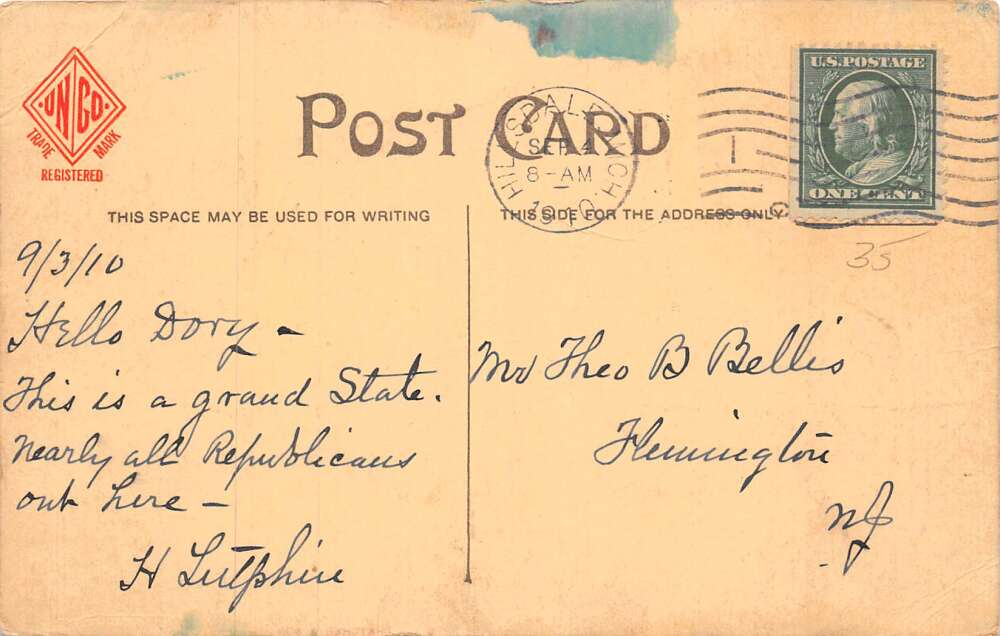 UNCO
TRADE MARK
REGISTERED
POST CARD
HILLSDALE, MICH
SEP 4
8-AM
1910
U.S. POSTAGE
ONE CENT
THIS SPACE MAY BE USED FOR WRITING
THIS SIDE FOR THE ADDRESS ONLY
35
9/3/10
Hello Dory -
This is a grand State.
Nearly all Republicans
out here -
H Sutphin
Mr Theo B Bellis
Flemington
NJ